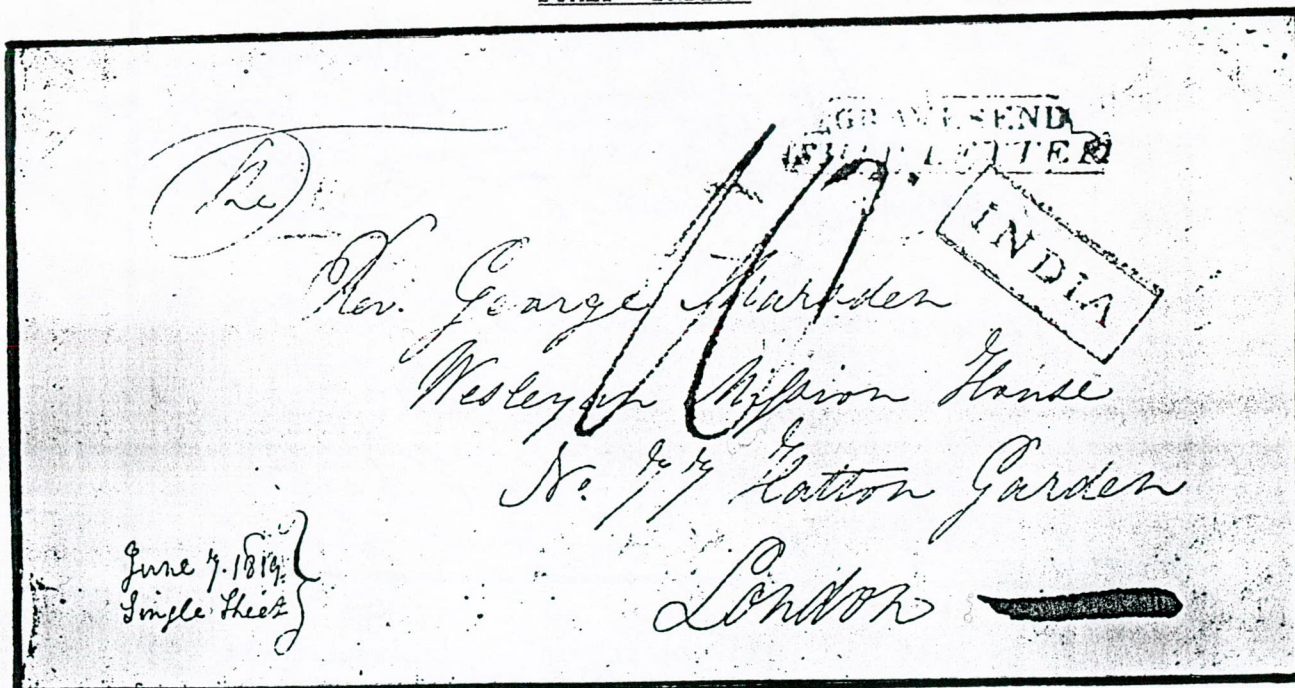 GRAVESEND
SHIP LETTER
INDIA
The
10
Rev. George Marsden
Wesleyan Mission House
No. 77 Hatton Garden
London
June 7. 1819.
Single Sheet